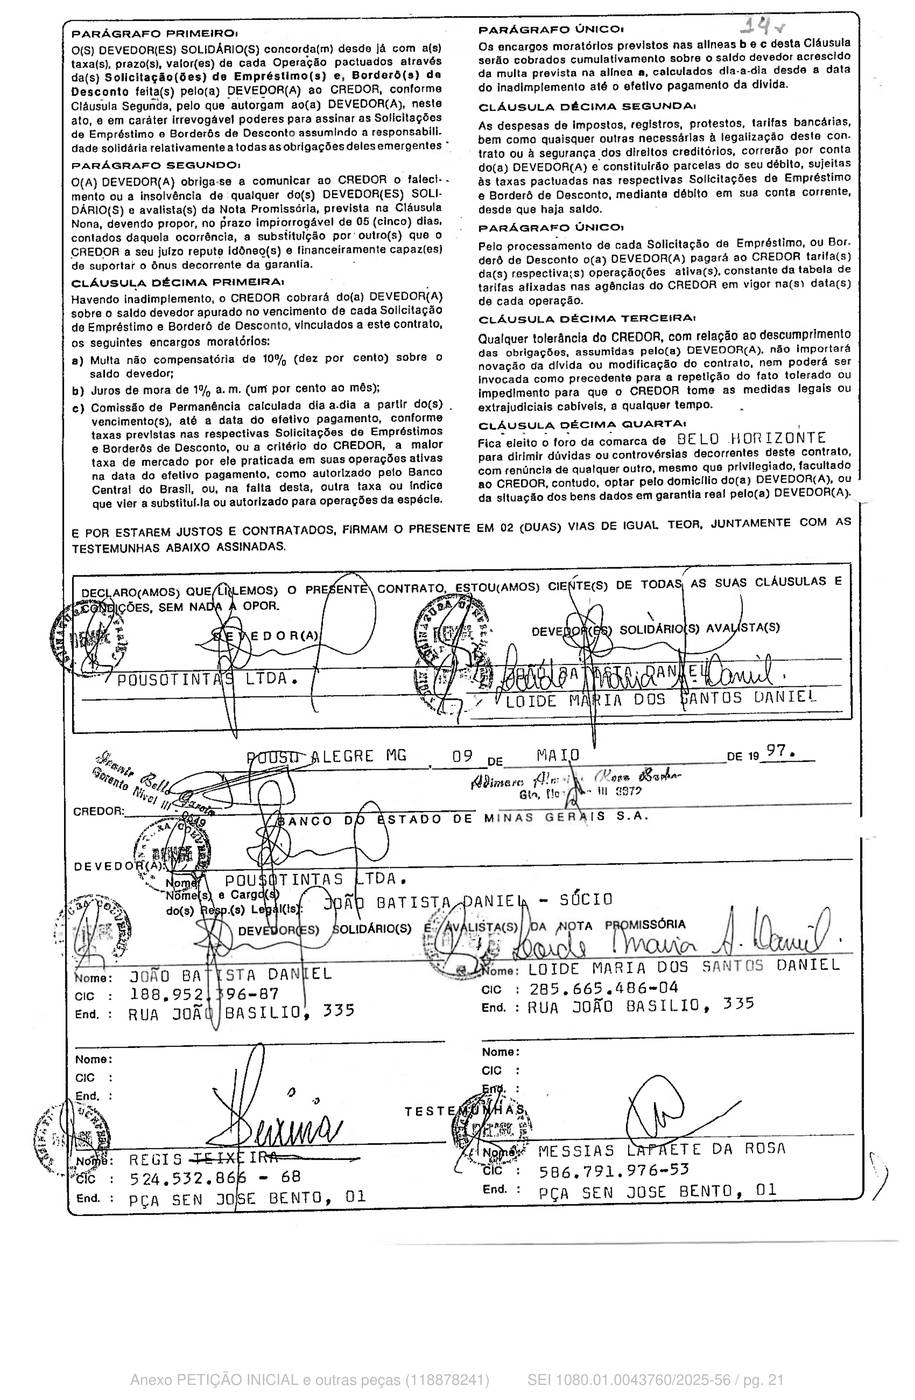 14
PARÁGRAFO PRIMEIRO:
O(S) DEVEDOR(ES) SOLIDÁRIO(S) concorda(m) desde já com a(s)
taxa(s), prazo(s), valor(es) de cada Operação pactuados através
da(s) Solicitação(ões) de Empréstimo(s) e, Borderô(s) de
Desconto feita(s) pelo(a) DEVEDOR(A) ao CREDOR, conforme
Cláusula Segunda, pelo que autorgam ao(a) DEVEDOR(A), neste
ato, e em caráter irrevogável poderes para assinar as Solicitações
de Empréstimo e Borderôs de Desconto assumindo a responsabili-
dade solidária relativamente a todas as obrigações deles emergentes
PARÁGRAFO SEGUNDO:
O(A) DEVEDOR(A) obriga-se a comunicar ao CREDOR o faleci-
mento ou a insolvência de qualquer do(s) DEVEDOR(ES) SOLI-
DÁRIO(S) e avalista(s) da Nota Promissória, prevista na Cláusula
Nona, devendo propor, no prazo improrrogável de 05 (cinco) dias,
contados daquela ocorrência, a substituição por outro(s) que o
CREDOR a seu juízo repute idôneo(s) e financeiramente capaz(es)
de suportar o ônus decorrente da garantia.
CLÁUSULA DÉCIMA PRIMEIRA:
Havendo inadimplemento, o CREDOR cobrará do(a) DEVEDOR(A)
sobre o saldo devedor apurado no vencimento de cada Solicitação
de Empréstimo e Borderô de Desconto, vinculados a este contrato,
os seguintes encargos moratórios:
a) Multa não compensatória de 10% (dez por cento) sobre o
saldo devedor;
b) Juros de mora de 1% a. m. (um por cento ao mês);
c) Comissão de Permanência calculada dia a.dia a partir do(s)
vencimento(s), até a data do efetivo pagamento, conforme
taxas previstas nas respectivas Solicitações de Empréstimos
e Borderôs de Desconto, ou a critério do CREDOR, a maior
taxa de mercado por ele praticada em suas operações ativas
na data do efetivo pagamento, como autorizado pelo Banco
Central do Brasil, ou, na falta desta, outra taxa ou índice
que vier a substituí.la ou autorizado para operações da espécie.
PARÁGRAFO ÚNICO:
Os encargos moratórios previstos nas alíneas b e c desta Cláusula
serão cobrados cumulativamento sobre o saldo devedor acrescido
da multa prevista na alínea a, calculados dia-a-dia desde a data
do inadimplemento até o efetivo pagamento da dívida.
CLÁUSULA DÉCIMA SEGUNDA:
As despesas de impostos, registros, protestos, tarifas bancárias,
bem como quaisquer outras necessárias à legalização deste con-
trato ou à segurança dos direitos creditórios, correrão por conta
do(a) DEVEDOR(A) e constituirão parcelas do seu débito, sujeitas
às taxas pactuadas nas respectivas Solicitações de Empréstimo
e Borderô de Desconto, mediante débito em sua conta corrente,
desde que haja saldo.
PARÁGRAFO ÚNICO:
Pelo processamento de cada Solicitação de Empréstimo, ou Bor-
derô de Desconto o(a) DEVEDOR(A) pagará ao CREDOR tarifa(s)
da(s) respectiva(s) operação(ões ativa(s), constante da tabela de
tarifas afixadas nas agências do CREDOR em vigor na(s) data(s)
de cada operação.
CLÁUSULA DÉCIMA TERCEIRA:
Qualquer tolerância do CREDOR, com relação ao descumprimento
das obrigações, assumidas pelo(a) DEVEDOR(A), não importará
novação da dívida ou modificação do contrato, nem poderá ser
invocada como precedente para a repetição do fato tolerado ou
impedimento para que o CREDOR tome as medidas legais ou
extrajudiciais cabíveis, a qualquer tempo.
CLÁUSULA DÉCIMA QUARTA:
Fica eleito o foro da comarca de BELO HORIZONTE
para dirimir dúvidas ou controvérsias decorrentes deste contrato,
com renúncia de qualquer outro, mesmo que privilegiado, facultado
ao CREDOR, contudo, optar pelo domicílio do(a) DEVEDOR(A), ou
da situação dos bens dados em garantia real pelo(a) DEVEDOR(A).
E POR ESTAREM JUSTOS E CONTRATADOS, FIRMAM O PRESENTE EM 02 (DUAS) VIAS DE IGUAL TEOR, JUNTAMENTE COM AS
TESTEMUNHAS ABAIXO ASSINADAS.
DECLARO(AMOS) QUE LI(LEMOS) O PRESENTE CONTRATO, ESTOU(AMOS) CIENTE(S) DE TODAS AS SUAS CLÁUSULAS E
CONDIÇÕES, SEM NADA A OPOR.
DEVEDOR(A)
DEVEDOR(ES) SOLIDÁRIO(S) AVALISTA(S)
POUSOTINTAS LTDA.
JOÃO BATISTA DANIEL
LOIDE MARIA DOS SANTOS DANIEL
POUSO ALEGRE MG, 09 DE MAIO DE 19 97.
Gerente Nivel III
III 9372
CREDOR:
BANCO DO ESTADO DE MINAS GERAIS S.A.
DEVEDOR(A):
Nome: POUSOTINTAS LTDA.
Nome(s) e Cargo(s)
do(s) Resp.(s) Legal(is): JOÃO BATISTA DANIEL - SÓCIO
DEVEDOR(ES) SOLIDÁRIO(S) E AVALISTA(S) DA NOTA PROMISSÓRIA
Nome: JOÃO BATISTA DANIEL
CIC : 188.952.396-87
End. : RUA JOÃO BASILIO, 335
Nome: LOIDE MARIA DOS SANTOS DANIEL
CIC : 285.665.486-04
End. : RUA JOÃO BASILIO, 335
Nome:
CIC :
End. :
Nome:
CIC :
End. :
TESTEMUNHAS
Nome: REGIS TEIXEIRA
CIC : 524.532.866 - 68
End. : PÇA SEN JOSE BENTO, 01
Nome: MESSIAS LAFAETE DA ROSA
CIC : 586.791.976-53
End. : PÇA SEN JOSE BENTO, 01
Anexo PETIÇÃO INICIAL e outras peças (118878241) SEI 1080.01.0043760/2025-56 / pg. 21